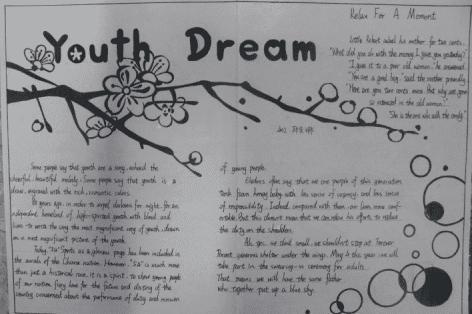 Youth Dream
Relax For A Moment
Little Robert asked his mother for two cents.
"What did you do with the money I gave you yesterday?"
"I gave it to a poor old woman," he answered.
"You're a good boy," said the mother proudly.
"Here are two cents more. But why are you
so interested in the old woman?"
She is the one who sells the candy."
Some people say that youth are a song, echoed the
cheerful, beautiful melody; Some people say that youth is a
draw, engraved with the rich, romantic colors.
years ago, in order to expel darkness for night, for an
independent homeland of high-spirited youth with blood and
lives to write the song the most magnificent song of youth, drawn
on a most magnificent picture of the youth.
Today, "5.4" Spirits as a glorious page has been included in
the annals of the Chinese nation. However, "5.4" is much more
than just a historical race, it is a spirit: to show young people
of our nation fiery love for the future and destiny of the
country, concerned about the performance of duty and mission
of young people.
Elders often say that we are people of this generation
took from honey baby with his sense of urgency and his sense
of responsibility. Indeed, compared with them, our lives more comf-
ortable. But this cannot mean that we can relax his efforts to reduce
the duty on the shoulders.
Ah, yes, we can't small, we shouldn't stop at forever
Parent generous shelter under the wings. May 4 this year we will
take part in the swearing-in ceremony for adults.
That means we will have the same father
who together put up a blue sky.